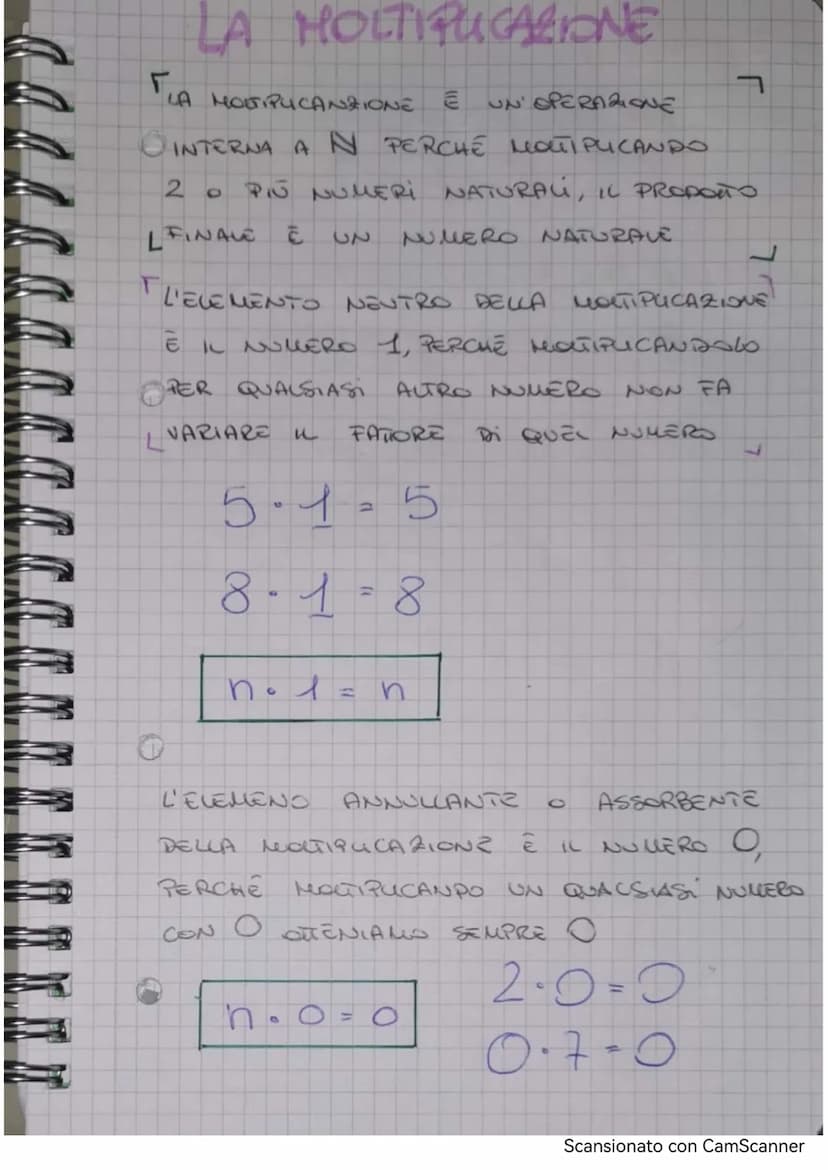 LA MOLTIPLICAZIONE
LA MOLTIPLICANZIONE È UN'OPERAZIONE
INTERNA A N PERCHÉ MOLTIPLICANDO
2 O PIÙ NUMERI NATURALI, IL PRODOTTO
FINALE È UN NUMERO NATURALE
L'ELEMENTO NEUTRO DELLA MOLTIPLICAZIONE
È IL NUMERO 1, PERCHÉ MOLTIPLICANDOLO
PER QUALSIASI ALTRO NUMERO NON FA
VARIARE IL FATTORE DI QUEL NUMERO
5 · 1 = 5
8 · 1 = 8
n · 1 = n
L'ELEMENO ANNULLANTE O ASSORBENTE
DELLA MOLTIPLICAZIONE È IL NUMERO 0,
PERCHÉ MOLTIPLICANDO UN QUALSIASI NUMERO
CON 0 OTTENIAMO SEMPRE 0
n · 0 = 0
2 · 0 = 0
0 · 7 = 0
Scansionato con CamScanner